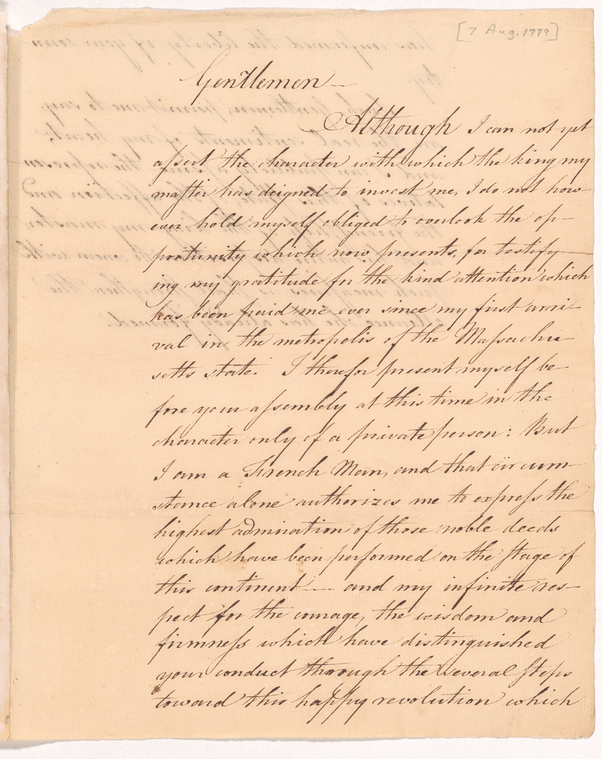 [7 Aug. 1779]
Gentlemen—
Although I can not yet
assert the character with which the king my
master has deigned to invest me, I do not how-
ever hold myself obliged to overlook the op-
portunity which now presents, for testify-
ing my gratitude for the kind attention which
has been paid me ever since my first arri-
val in the metropolis of the Massachu-
setts state: I therefor present myself be-
fore your assembly at this time in the
character only of a private person: But
I am a French Man, and that circum-
stance alone authorizes me to express the
highest admiration of those noble deeds
which have been performed on the stage of
this continent — and my infinite res-
pect for the courage, the wisdom and
firmness which have distinguished
your conduct through the several steps
toward this happy revolution which